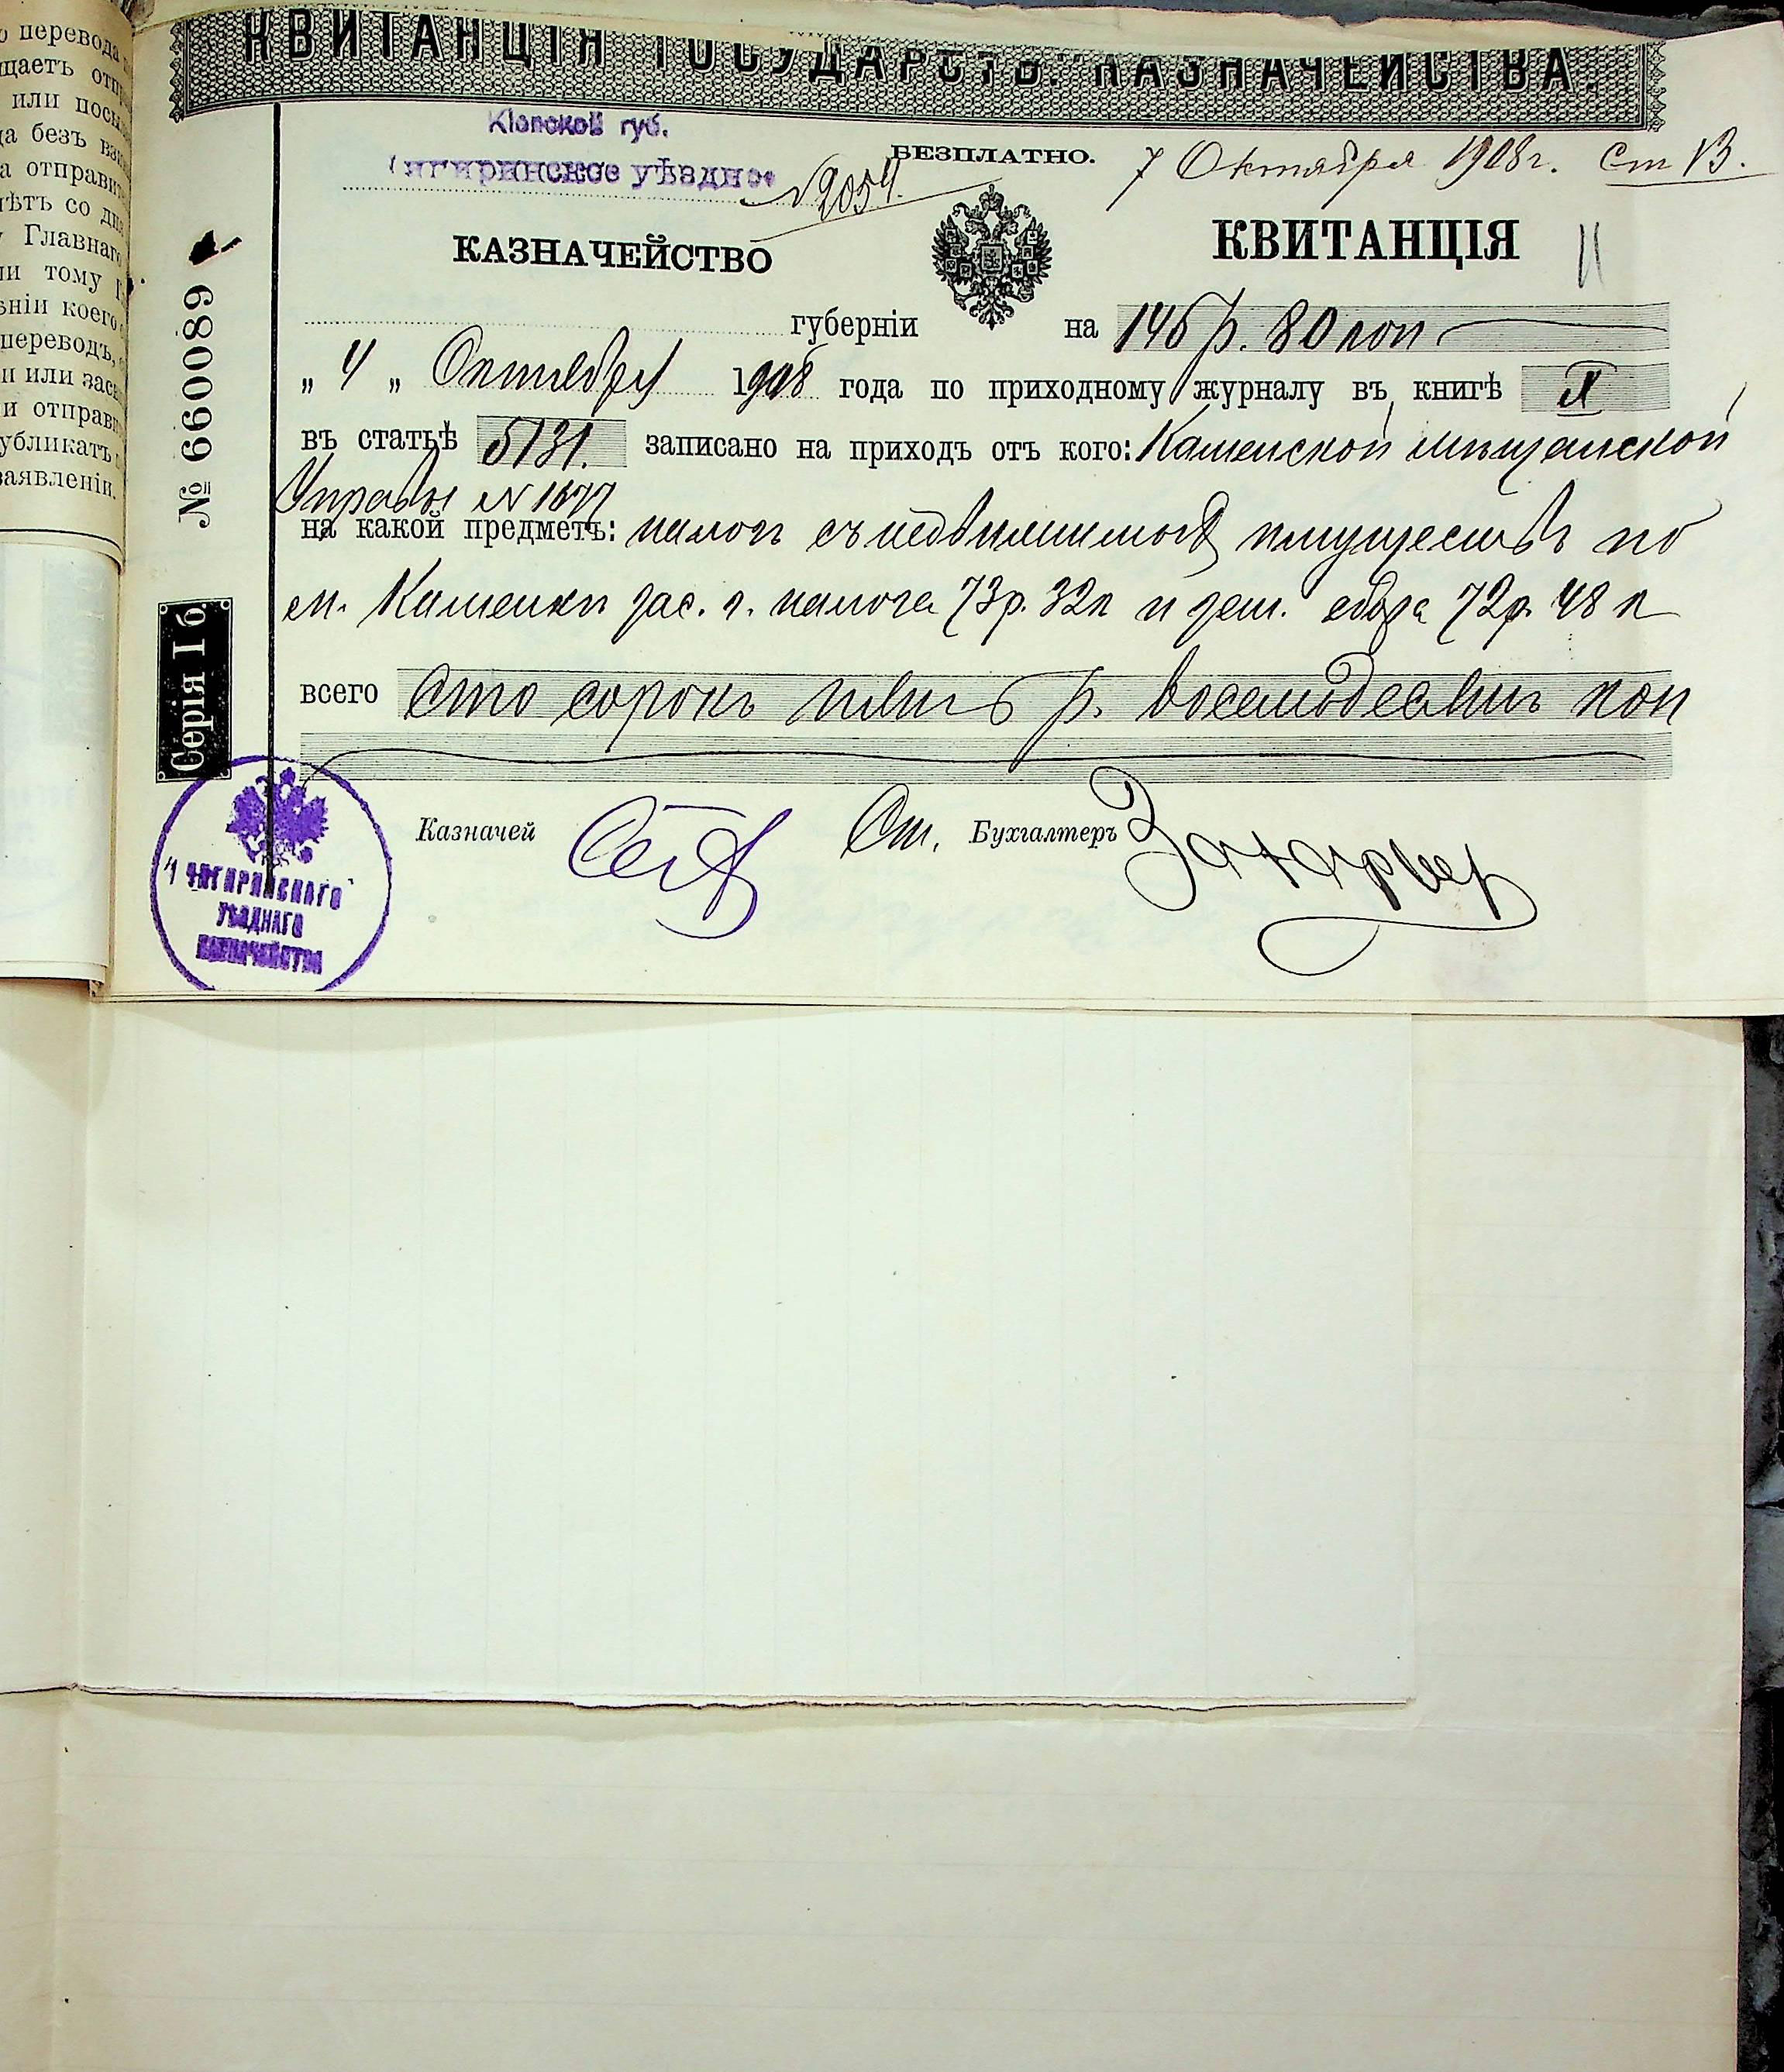 о перевода
щаетъ
или посы
да безъ
а отправи
лѣтъ со дня
Главнаго
ли тому
ѣніи коего
переводъ,
и или
и отправи
убликатъ
заявленіи.
КВИТАНЦІЯ ГОСУДАРСТВ. КАЗНАЧЕЙСТВА.
Кіевской губ.
Чигиринское уѣздное
БЕЗПЛАТНО.
7 Октября 1908 г. Ст 13.
N 2054.
КАЗНАЧЕЙСТВО
КВИТАНЦІЯ
11
губерніи
на 145 р. 80 коп
„ 4 „ Октября 1908 года по приходному журналу въ книгѣ II
въ статьѣ 5131. записано на приходъ отъ кого: Каменской мѣщанской
Управы N 1677
на какой предметъ: налогъ съ недвижимыхъ имуществъ по
м. Каменки гос. н. налога 73 р. 32 к и зем. сбора 72 р. 48 к
всего Сто сорокъ пять р. восемьдесятъ коп
Казначей
Ст. Бухгалтеръ
№ 660089
Серія І б.
ЧИГИРИНСКАГО
УѢЗДНАГО
КАЗНАЧЕЙСТВА